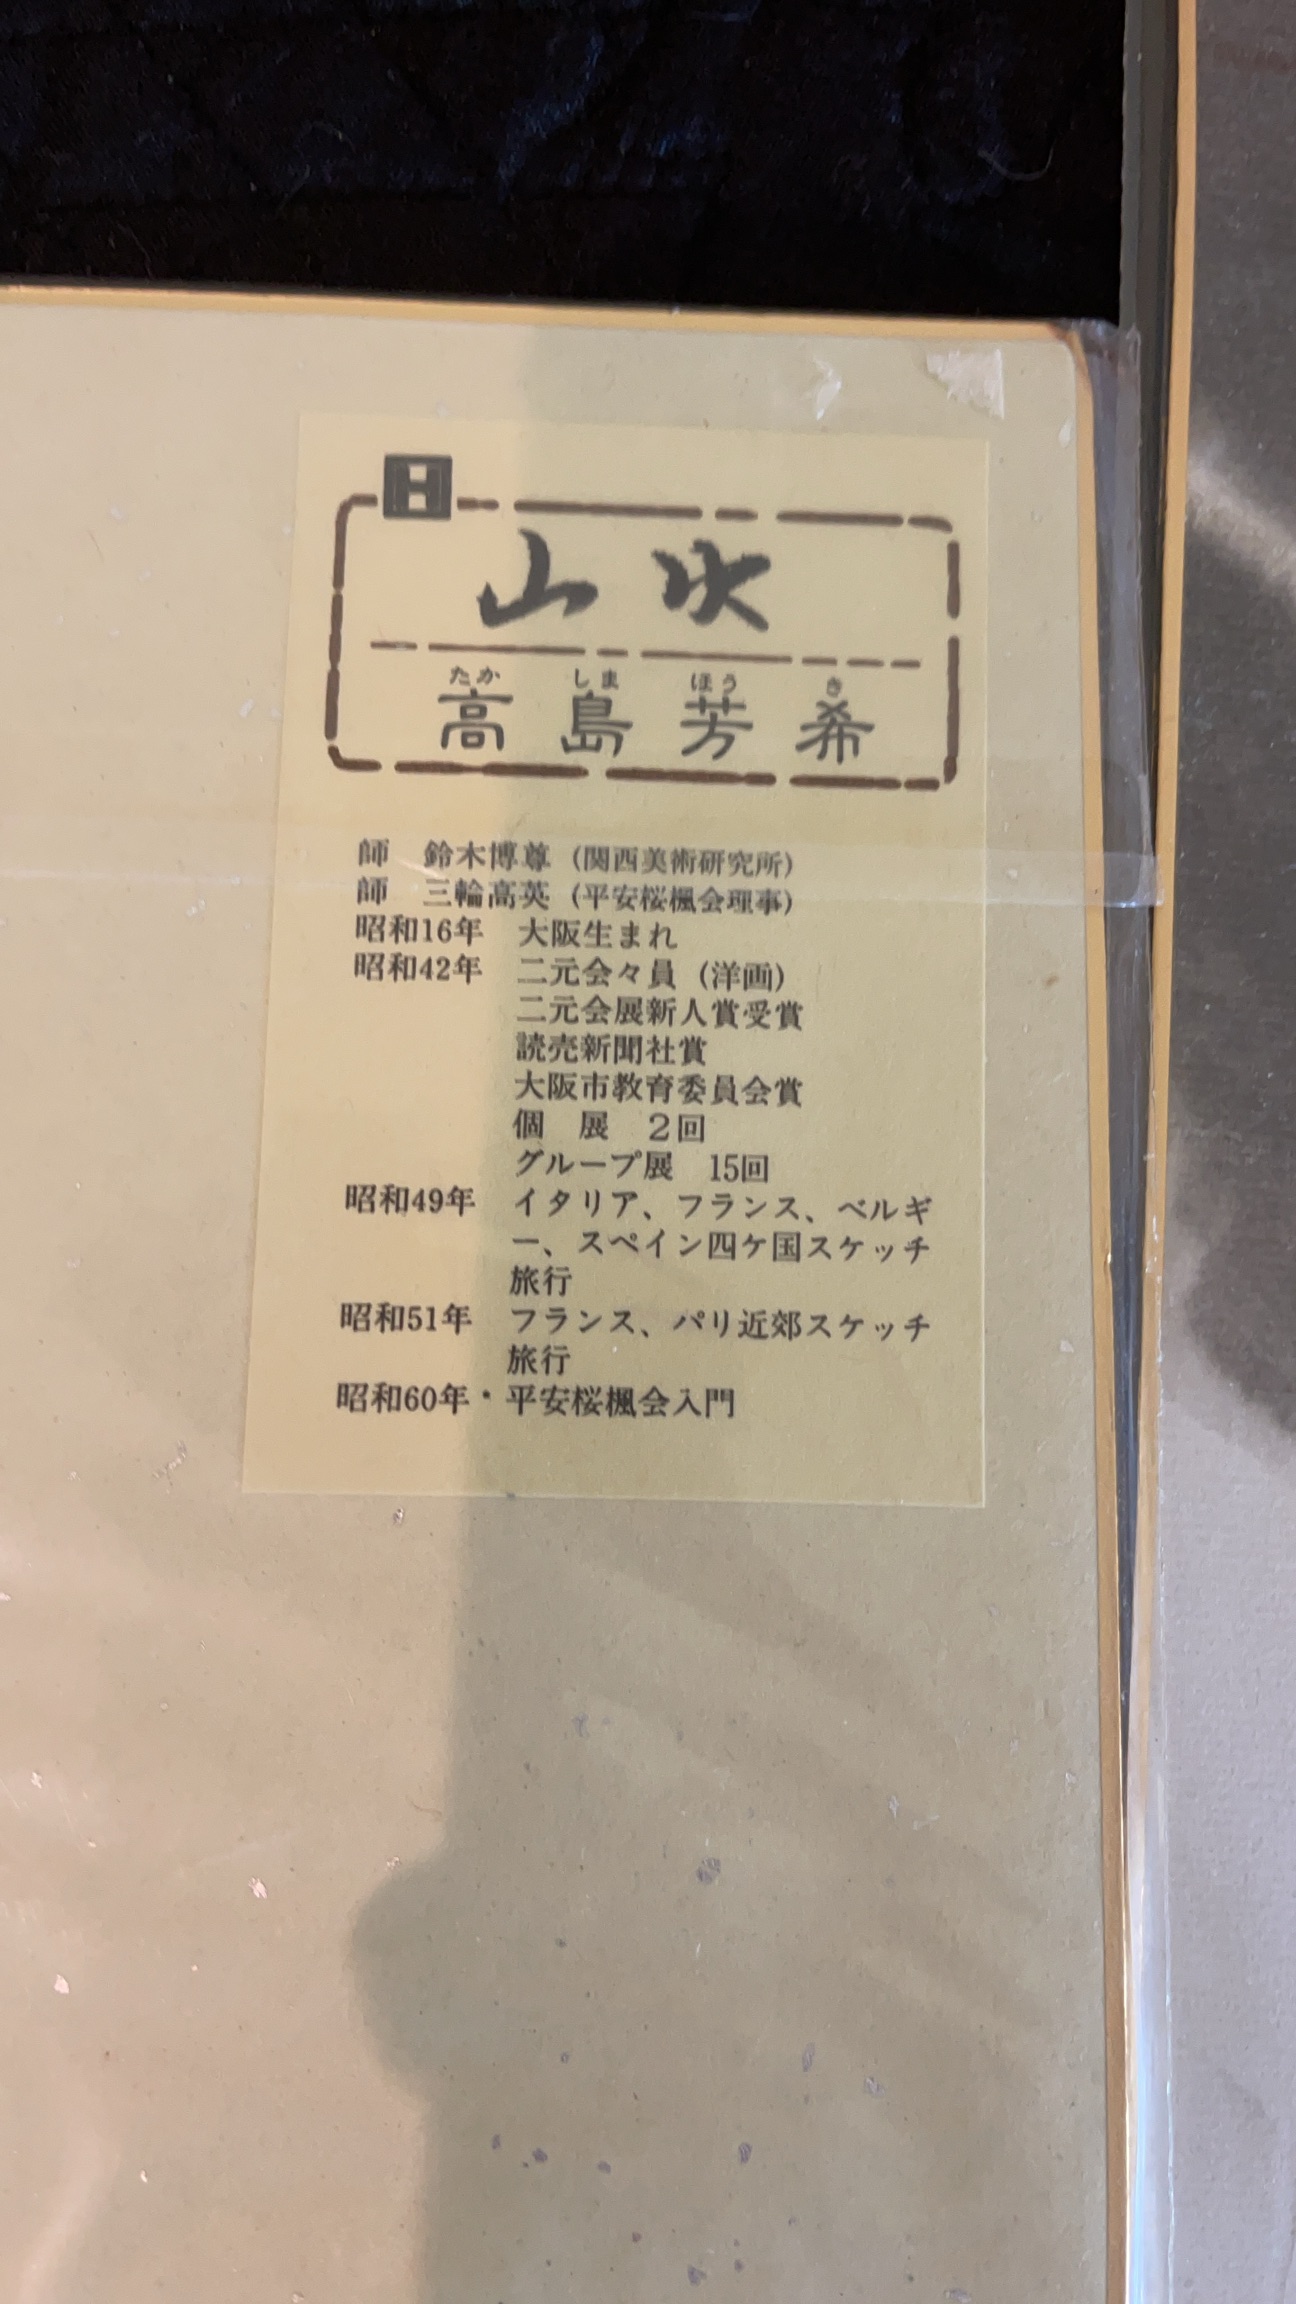 山吹
たか しま ほう き
高島芳希
師　鈴木博尊（関西美術研究所）
師　三輪高英（平安桜楓会理事）
昭和16年　大阪生まれ
昭和42年　二元会々員（洋画）
二元会展新人賞受賞
読売新聞社賞
大阪市教育委員会賞
個　展　2回
グループ展　15回
昭和49年　イタリア、フランス、ベルギ
ー、スペイン四ケ国スケッチ
旅行
昭和51年　フランス、パリ近郊スケッチ
旅行
昭和60年・平安桜楓会入門